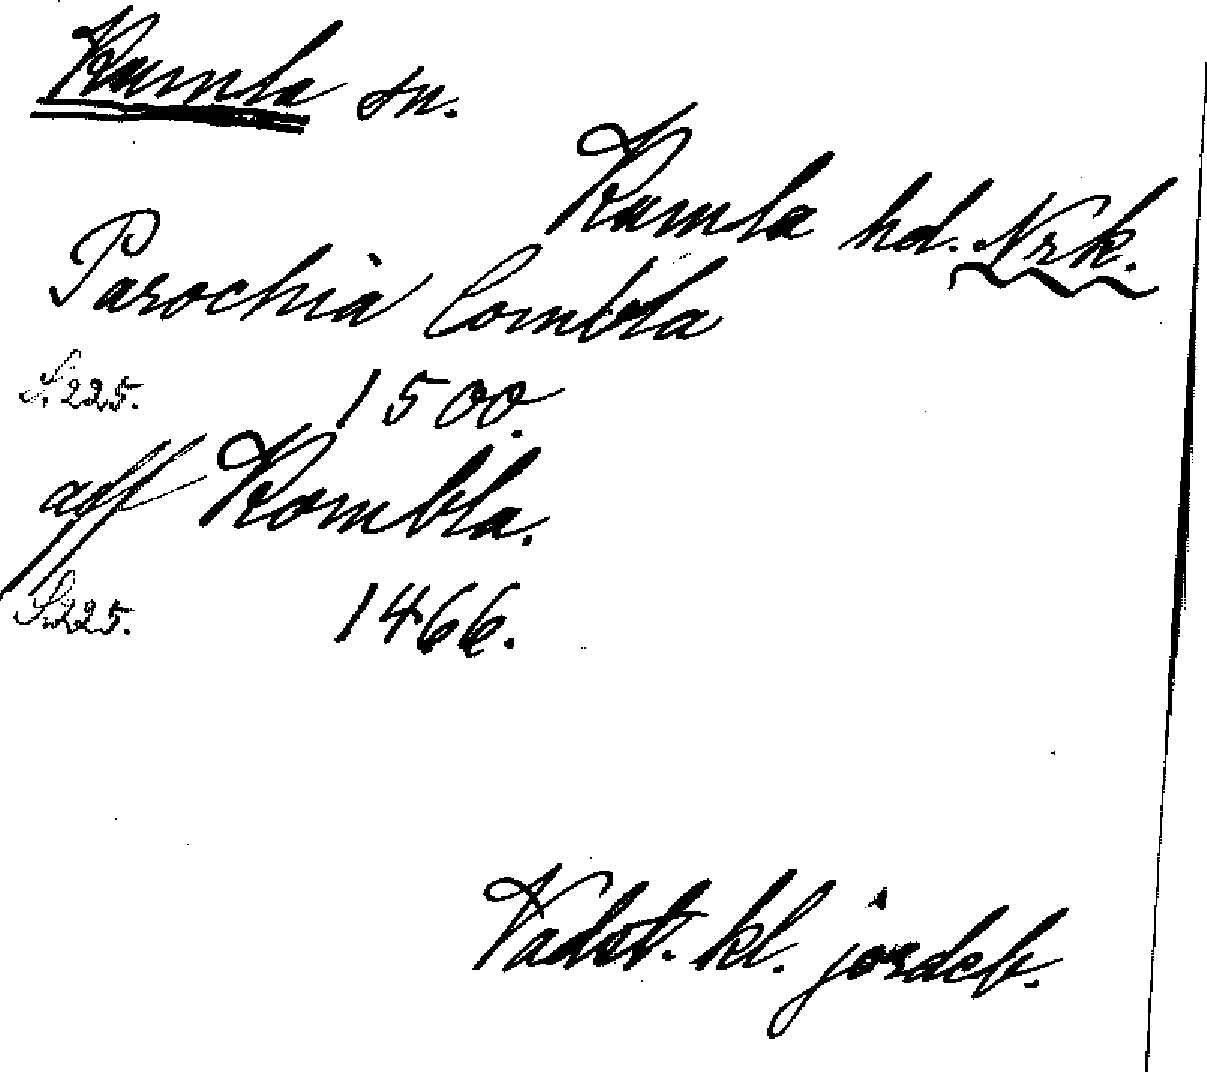 Kumla sn.
Kumla hd. Nrk.
Parochia Combla
S. 225. 1500.
aff Kombla.
S. 225. 1466.
Vadst. kl. jordeb.